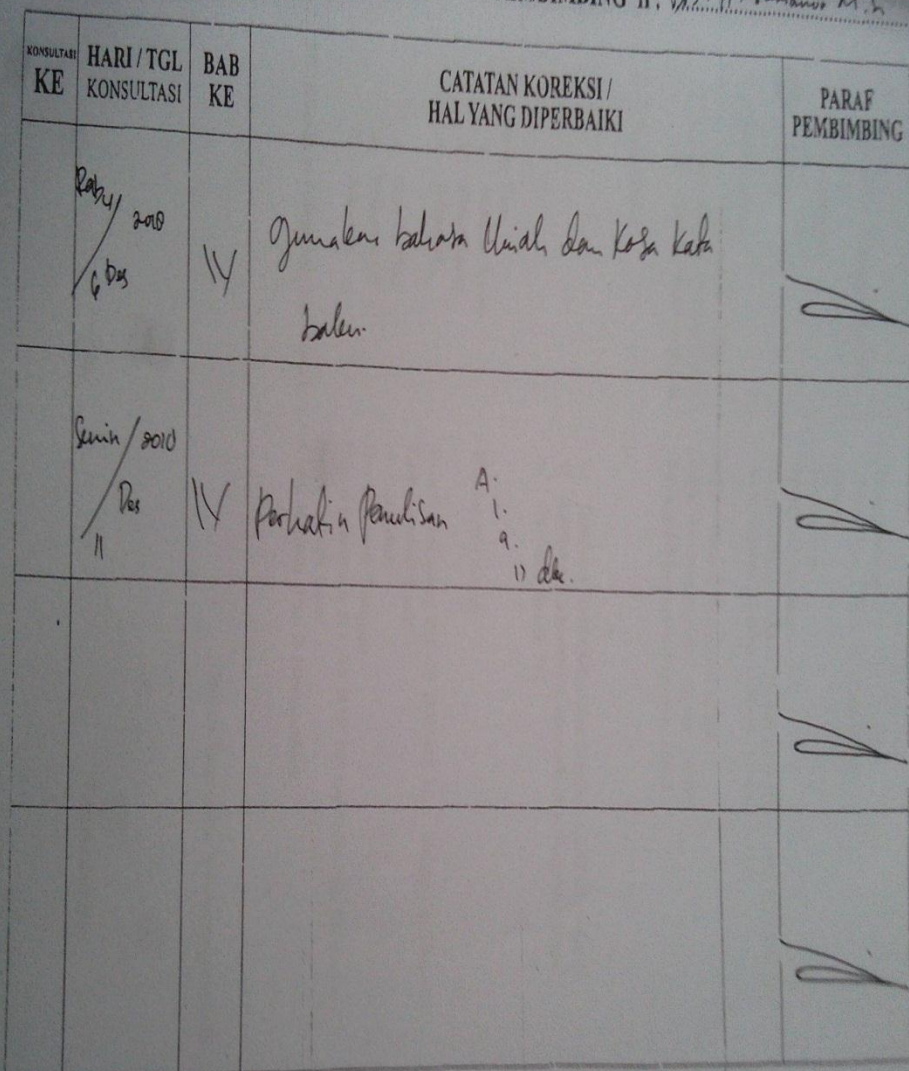 KONSULTASI KE
HARI / TGL KONSULTASI
BAB KE
CATATAN KOREKSI /
HAL YANG DIPERBAIKI
PARAF PEMBIMBING
Rabu / 2010
6 Des
IV
gunakan bahasa Ilmiah dan Kosa Kata
baku.
Senin / 2010
Des
11
IV
Perhatin Penulisan A.
1.
a.
1) dll.